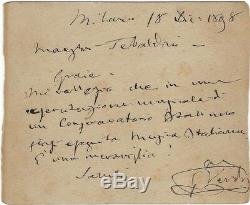 Milano 18 Dic. 1898
Maestro Tebaldini
Grazie.
Mi rallegro che in una
esercitazione musicale di
un Conservatorio Italiano
si eseguita Musica Italiana
È una maraviglia!
Saluti
G Verdi